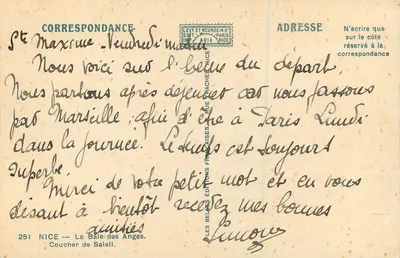 CORRESPONDANCE
ADRESSE
N'écrire que
sur le côté
réservé à la
correspondance
LEVY ET NEURDEIN RÉUNIS
PARIS
NICE
Ste Maxime. Vendredi matin
Nous voici sur l'heure du départ.
Nous partons après déjeuner car nous passons
par Marseille, afin d'être à Paris Lundi
dans la journée. Le temps est toujours
superbe.
Merci de votre petit mot et en vous
disant à bientôt recevez mes bonnes
amitiés
Simone
251 NICE — La Baie des Anges.
Coucher de Soleil.